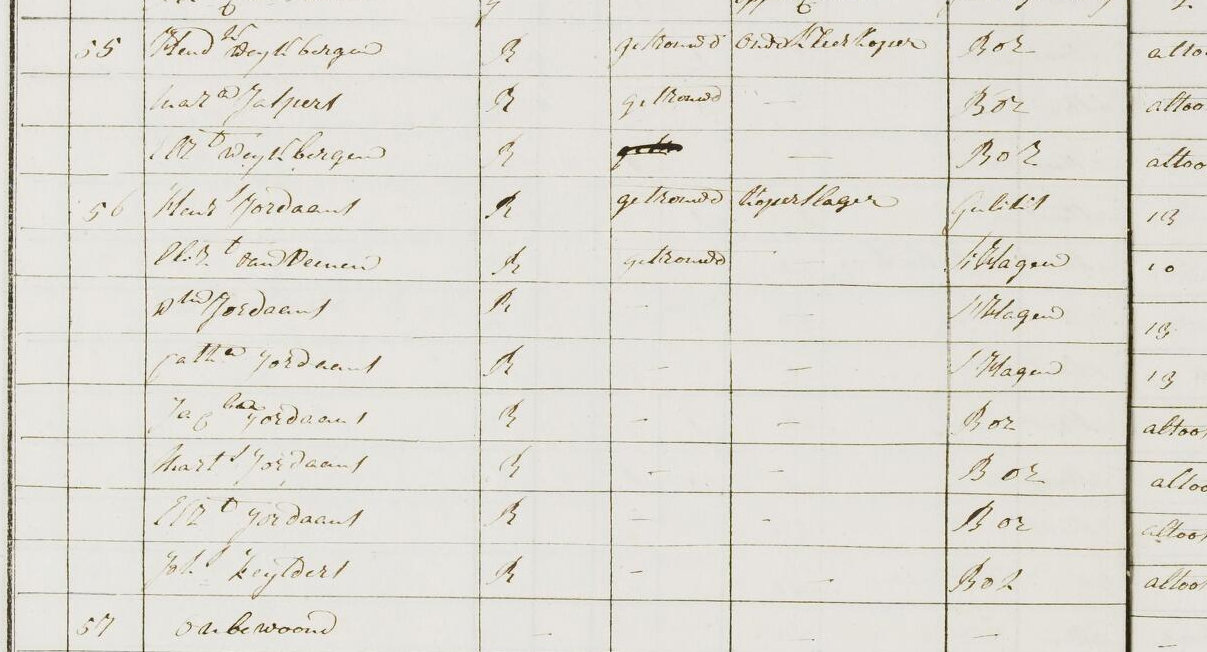 55 Hend k Weytbergen R getrouwd Oude Kleerkoper BoZ altoo
Mar a Jaspers R getrouwd — BoZ altoo
Eliz t Weytbergen R — BoZ altoo
56 Henr s Jordaans R getrouwd Koperslager 13
Eliz t van Deenen R getrouwd — s Hagen 10
Jordaans R — — s Hagen 13
Cath a Jordaans R — — s Hagen 13
Jac ba Jordaans R — — BoZ altoos
Mart s Jordaans R — — BoZ altoo
Eliz t Jordaans R — — BoZ altoos
Joh s R — — BoZ altoos
57 onbewoond — — — —